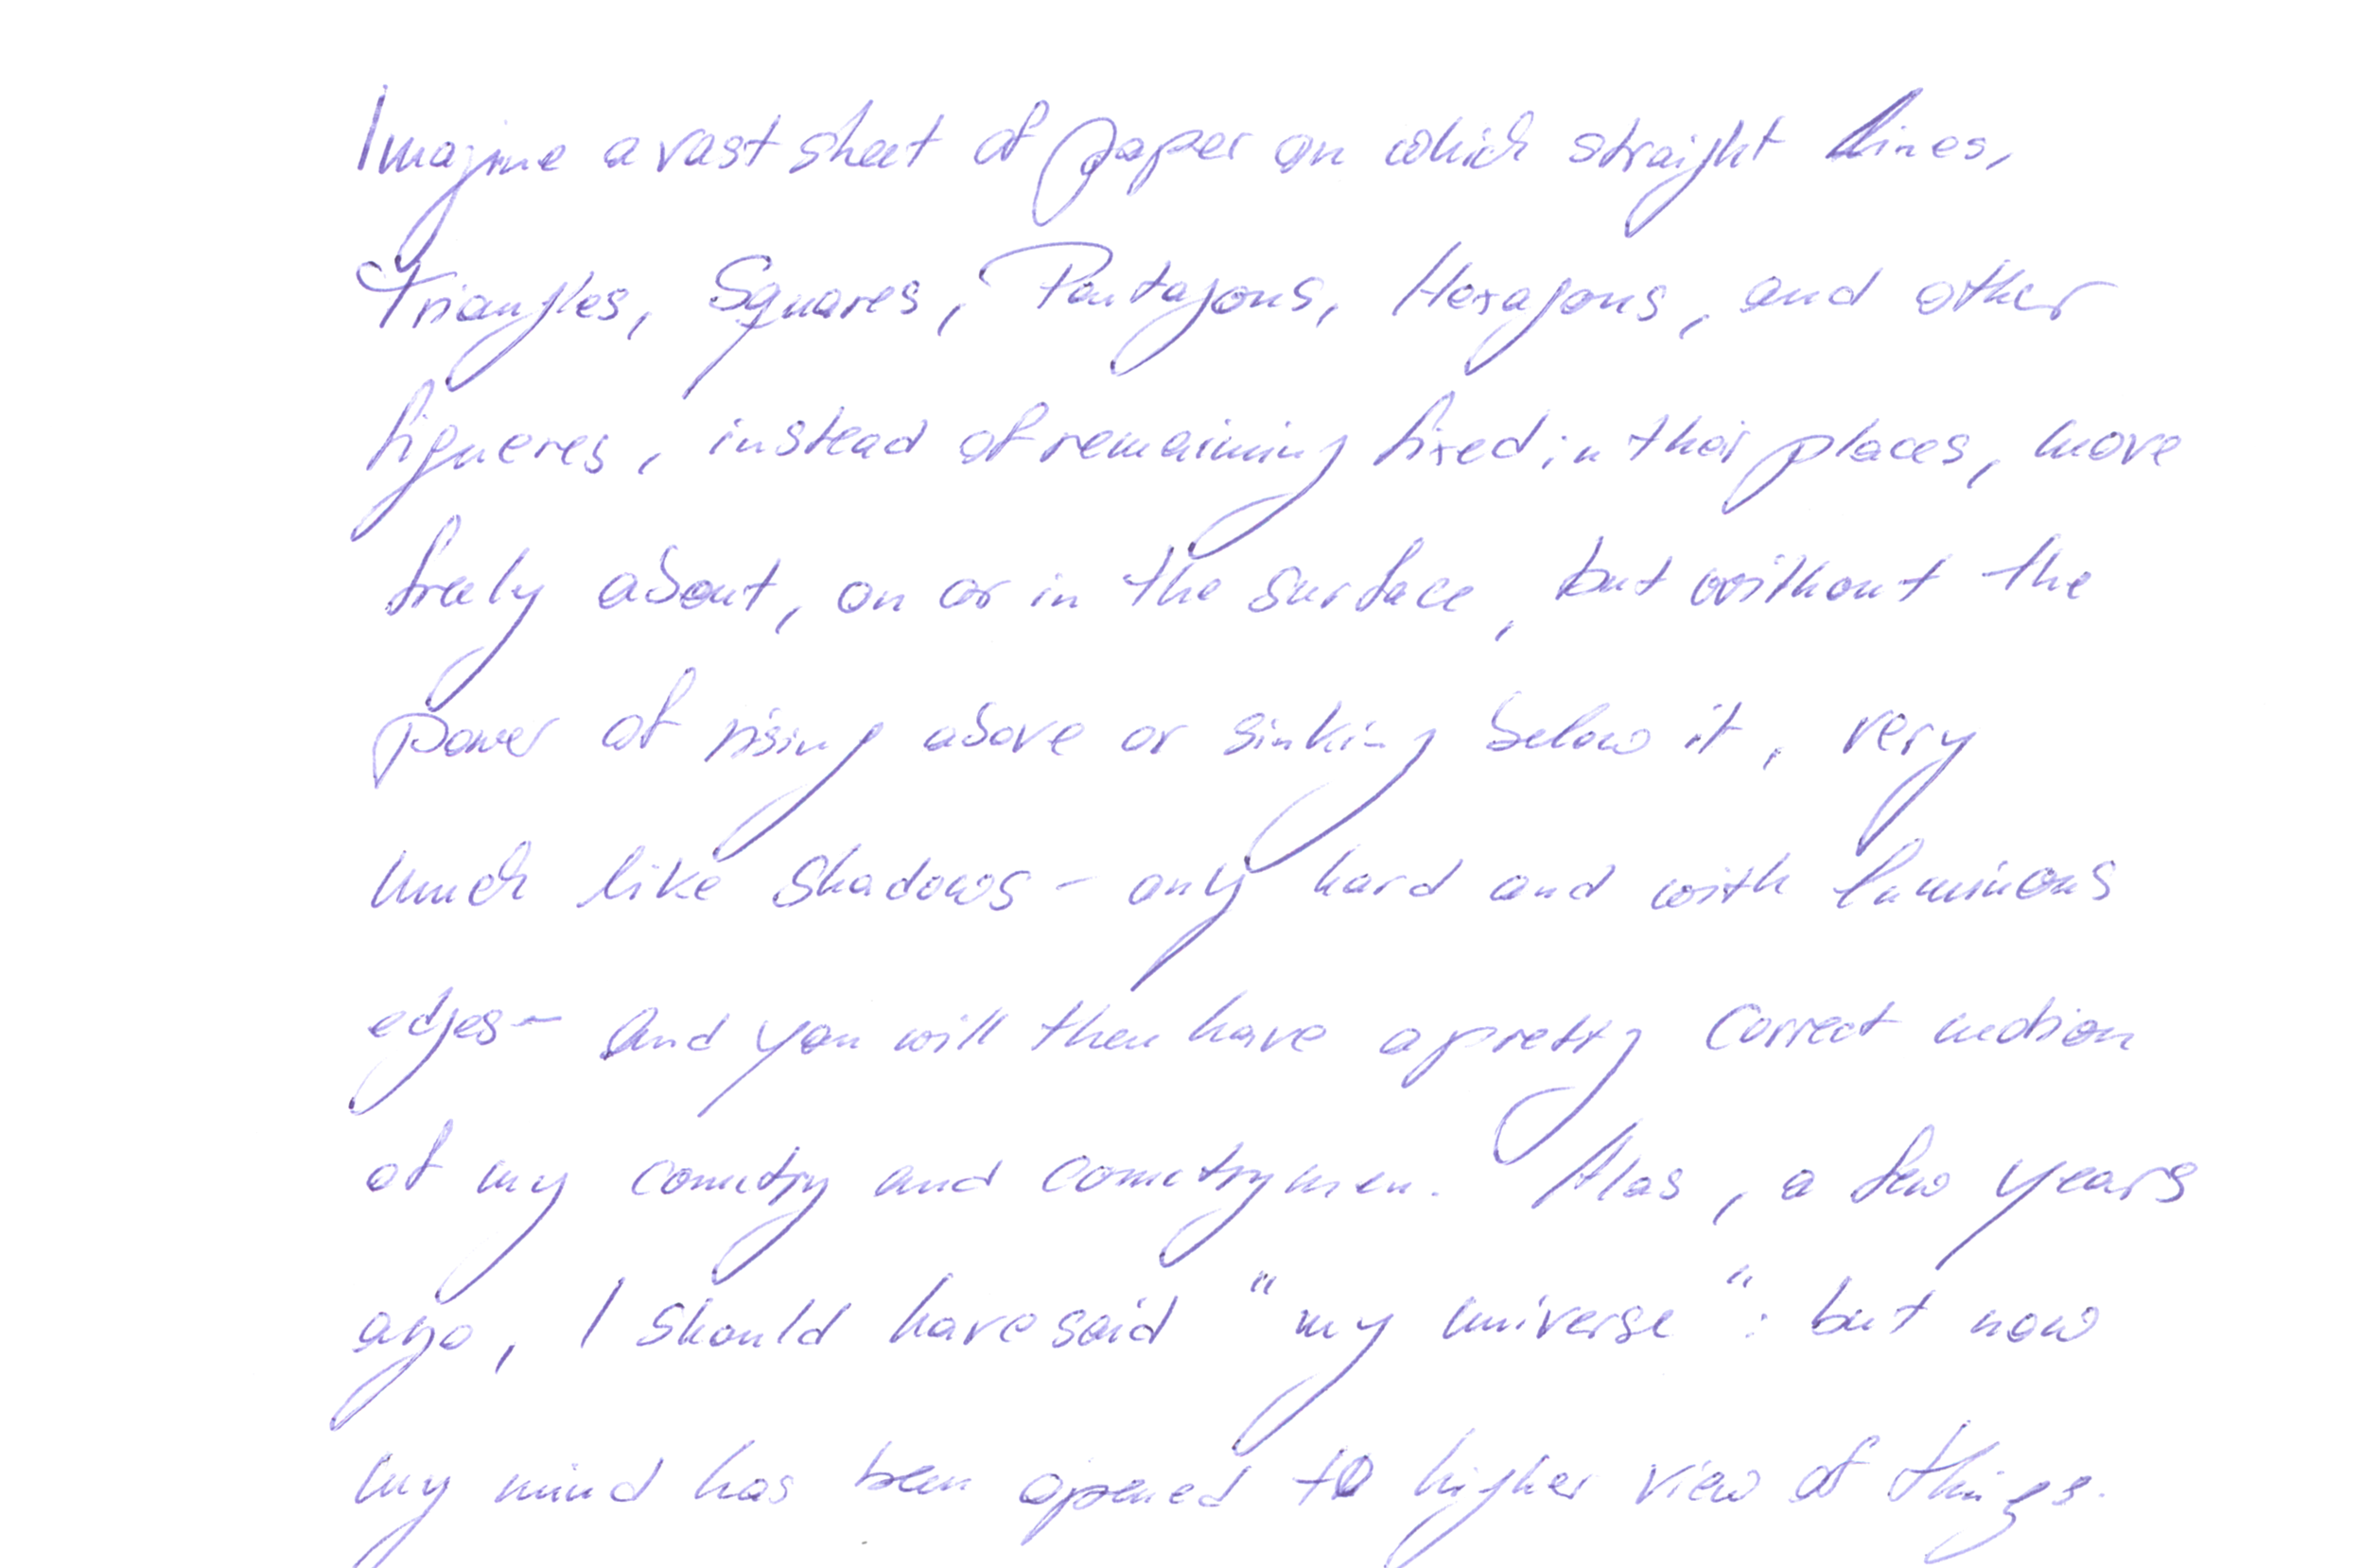 Imagine a vast sheet of paper on which straight lines,
Triangles, Squares, Pentagons, Hexagons, and other
figueres, instead of remaining fixed in their places, move
freely about, on or in the surface, but without the
power of rising above or sinking below it, very
much like shadows - only hard and with luminous
edges - and you will then have a pretty correct notion
of my country and countrymen. Alas, a few years
ago, I should have said "my universe": but now
my mind has been opened to higher view of things.